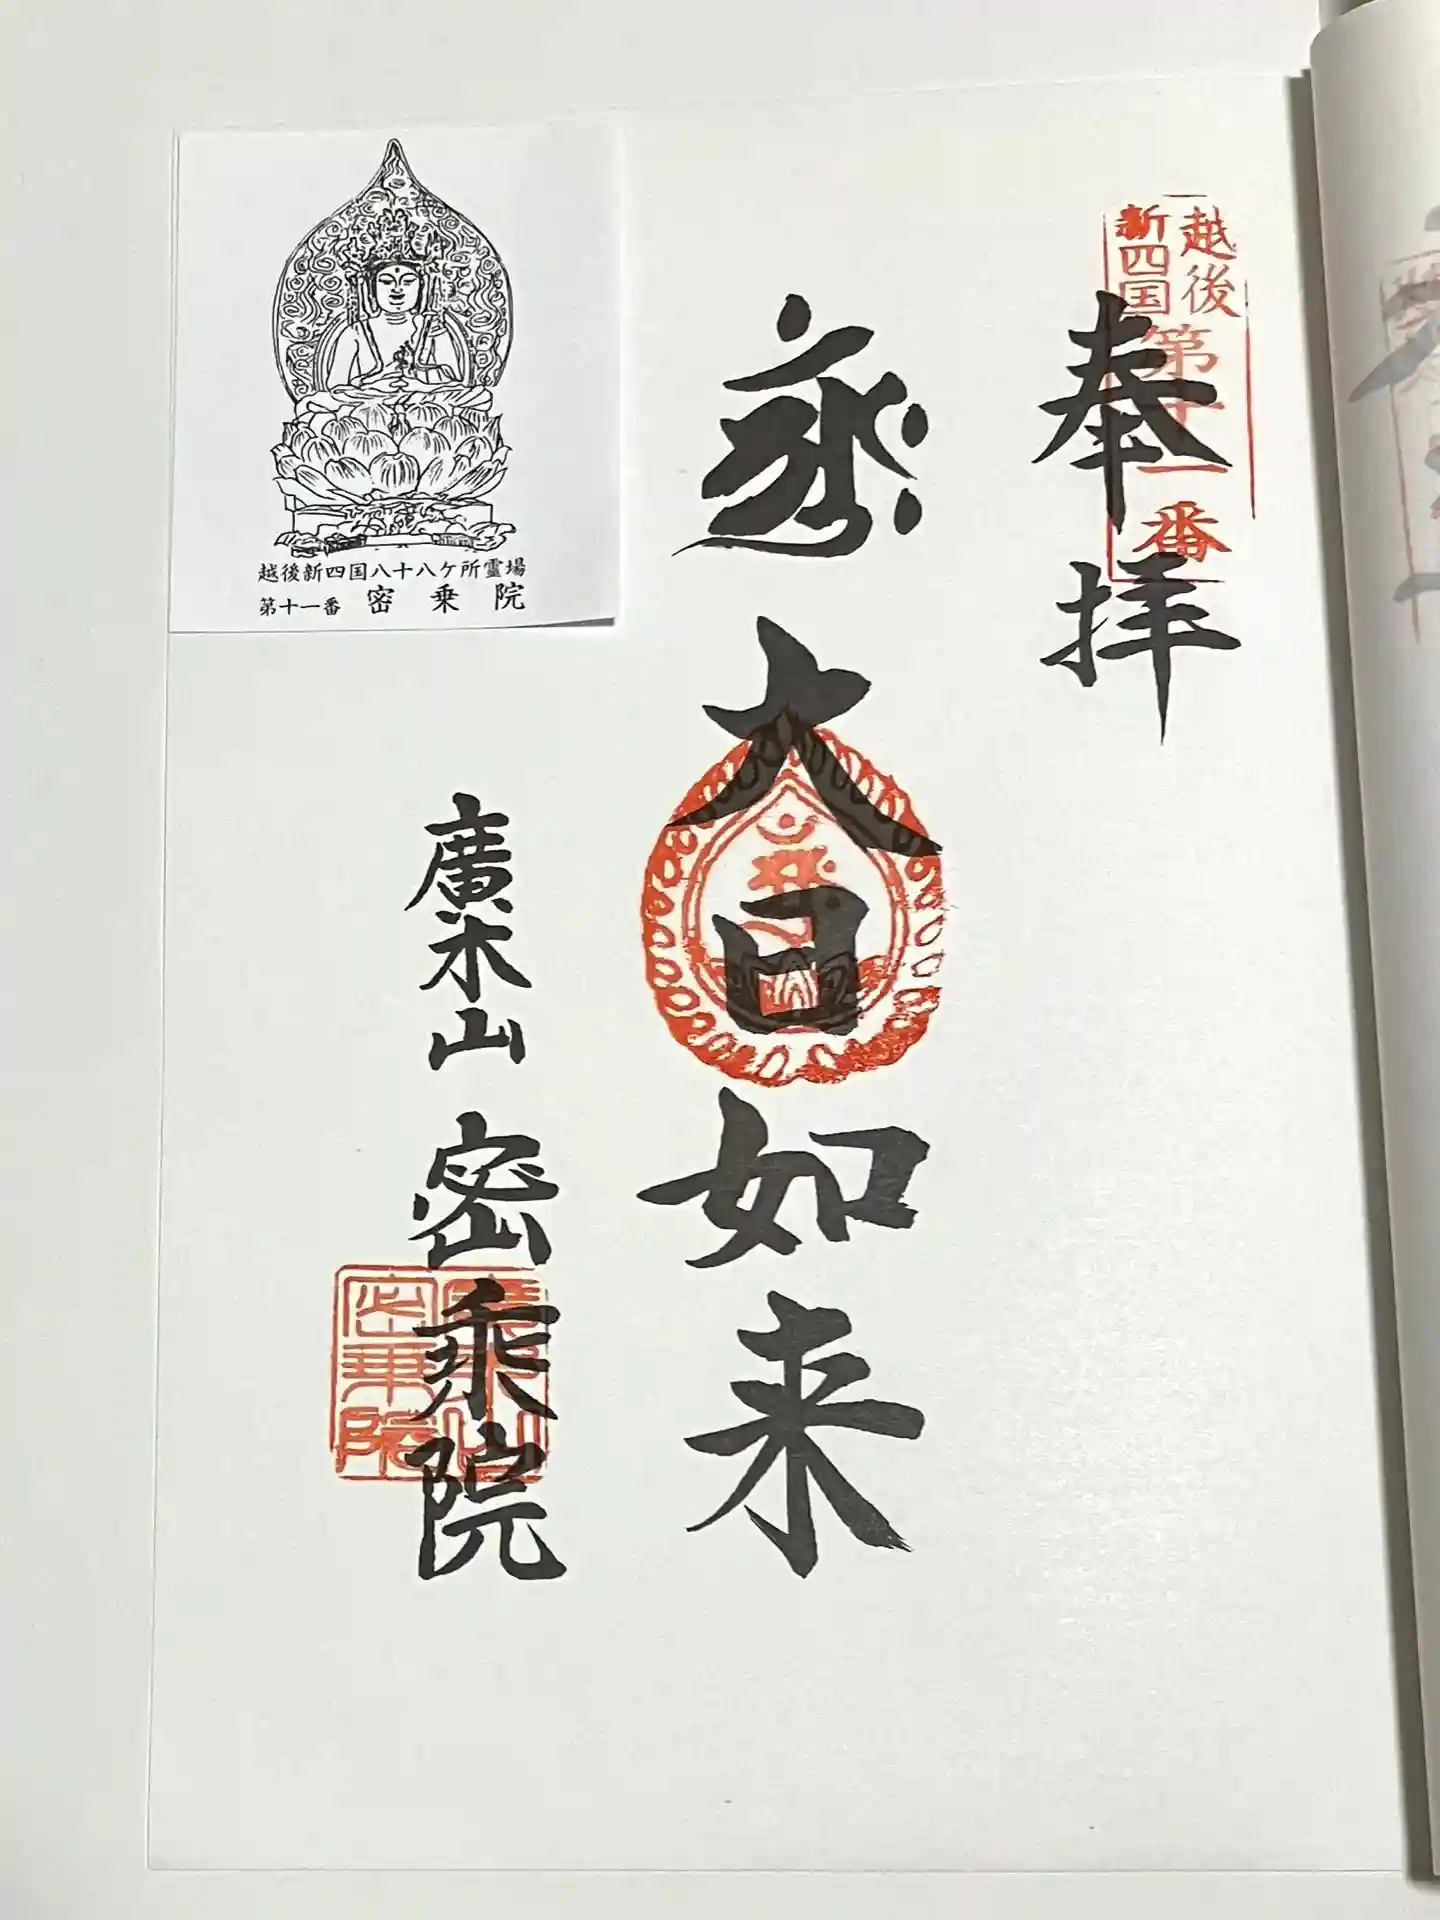 越後
新四国
第十一番
奉拝
大日如来
廣木山 密乗院
密乗院
越後新四国八十八ケ所霊場
第十一番 密乗院